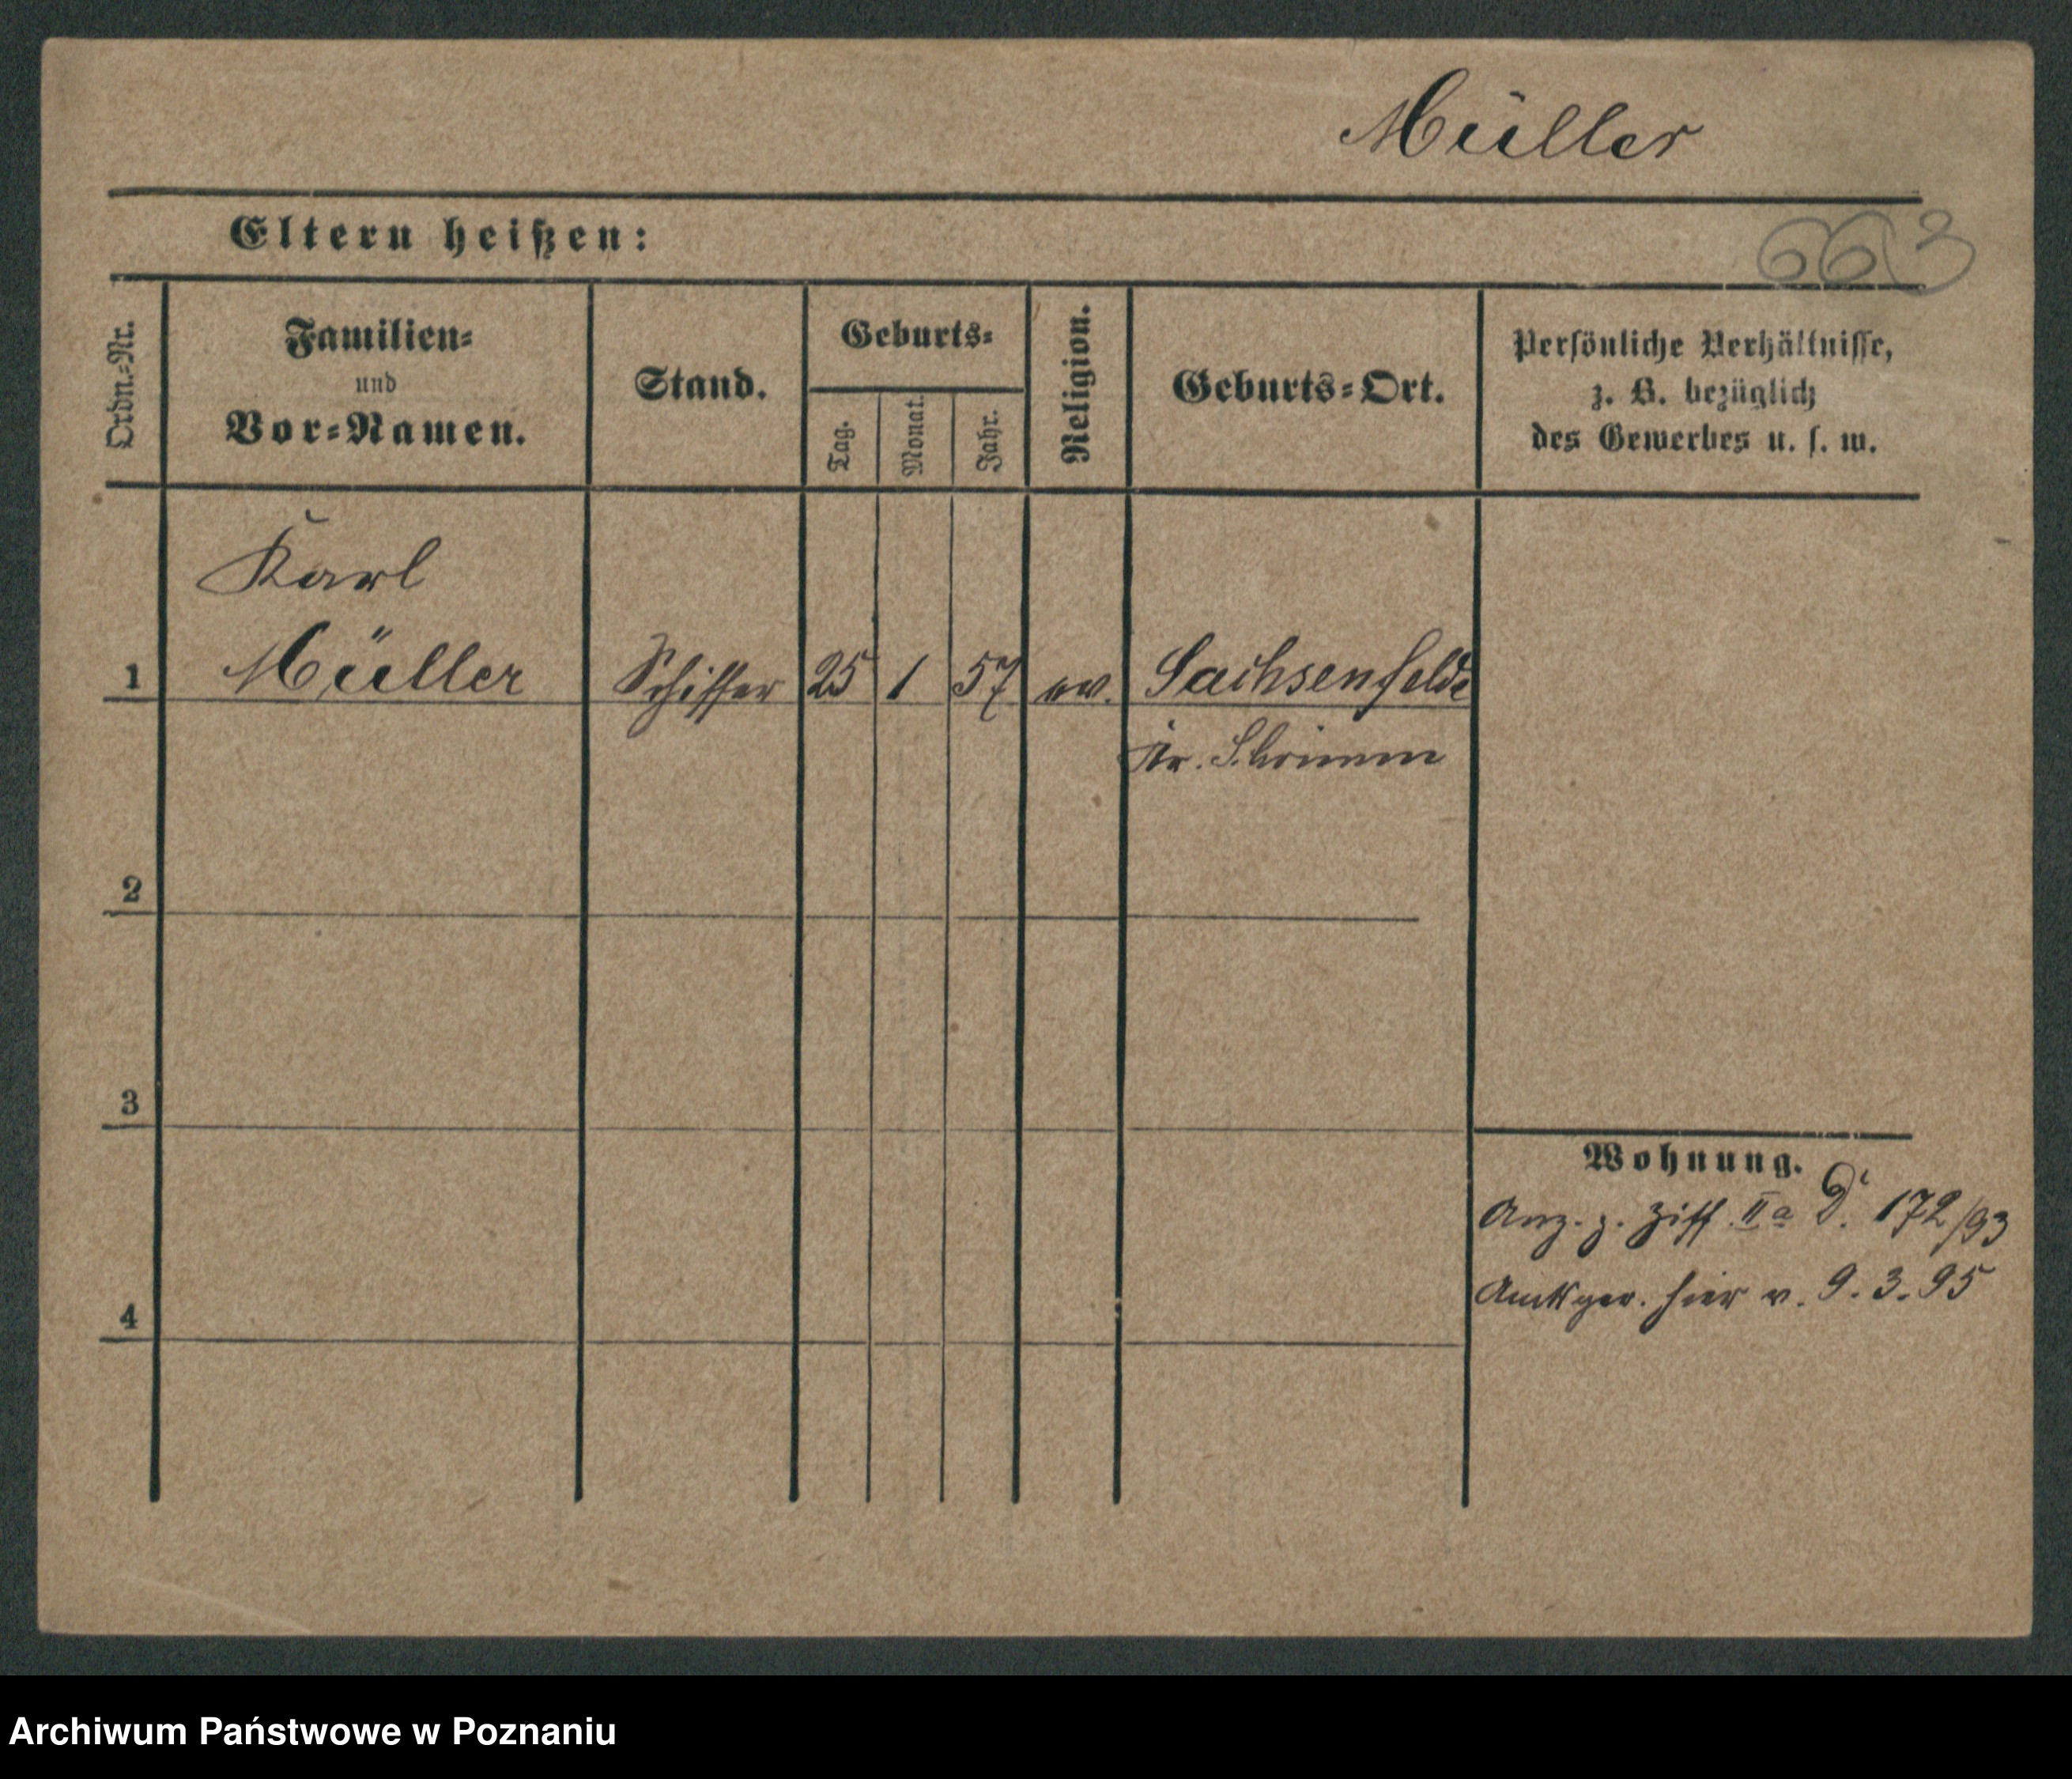 Müller
Eltern heißen:
663
Ordn.-Nr.
Familien-
und
Vor-Namen.
Stand.
Geburts-
Tag.
Monat.
Jahr.
Religion.
Geburts-Ort.
Persönliche Verhältnisse,
z. B. bezüglich
des Gewerbes u. s. w.
Karl
1 Müller Schiffer 25 1 57 ev. Sachsenfelde
Kr. Schrimm
2
3
Wohnung.
Anz. z. Ziff. IIa D. 172/93
Amtsger. hier v. 9.3.95
4
Archiwum Państwowe w Poznaniu